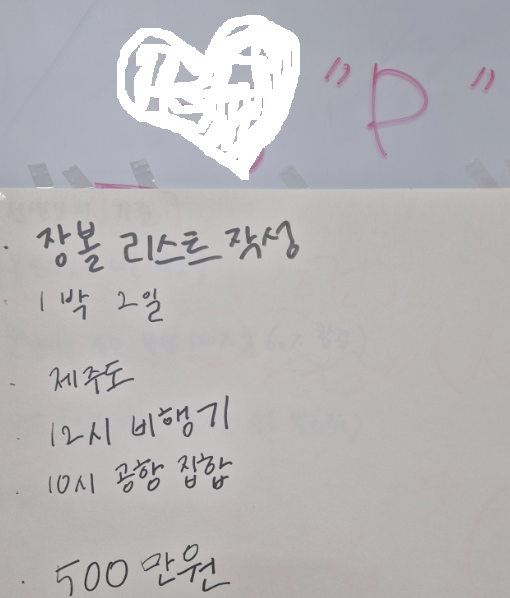 "P"
· 장볼 리스트 작성
1박 2일
· 제주도
· 12시 비행기
· 10시 공항 집합
· 500 만원